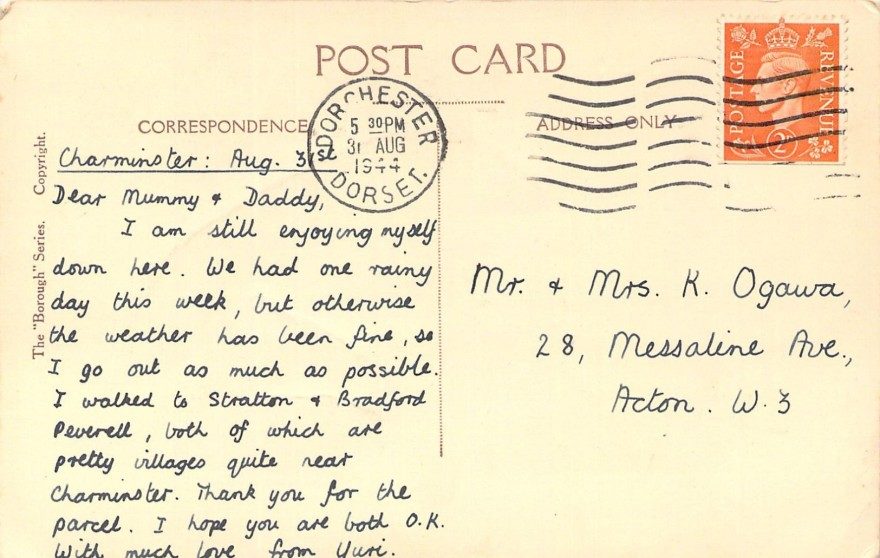 POST CARD
CORRESPONDENCE
ADDRESS ONLY
The "Borough" Series. Copyright.
DORCHESTER
5 30PM
31 AUG
1944
DORSET.
POSTAGE
REVENUE
2D
Charminster: Aug. 31st
Dear Mummy & Daddy,
I am still enjoying myself
down here. We had one rainy
day this week, but otherwise
the weather has been fine, so
I go out as much as possible.
I walked to Stratton & Bradford
Peverell, both of which are
pretty villages quite near
Charminster. Thank you for the
parcel. I hope you are both O.K.
With much love from Yuri.
Mr. & Mrs. K. Ogawa,
28, Messaline Ave.,
Acton. W.3